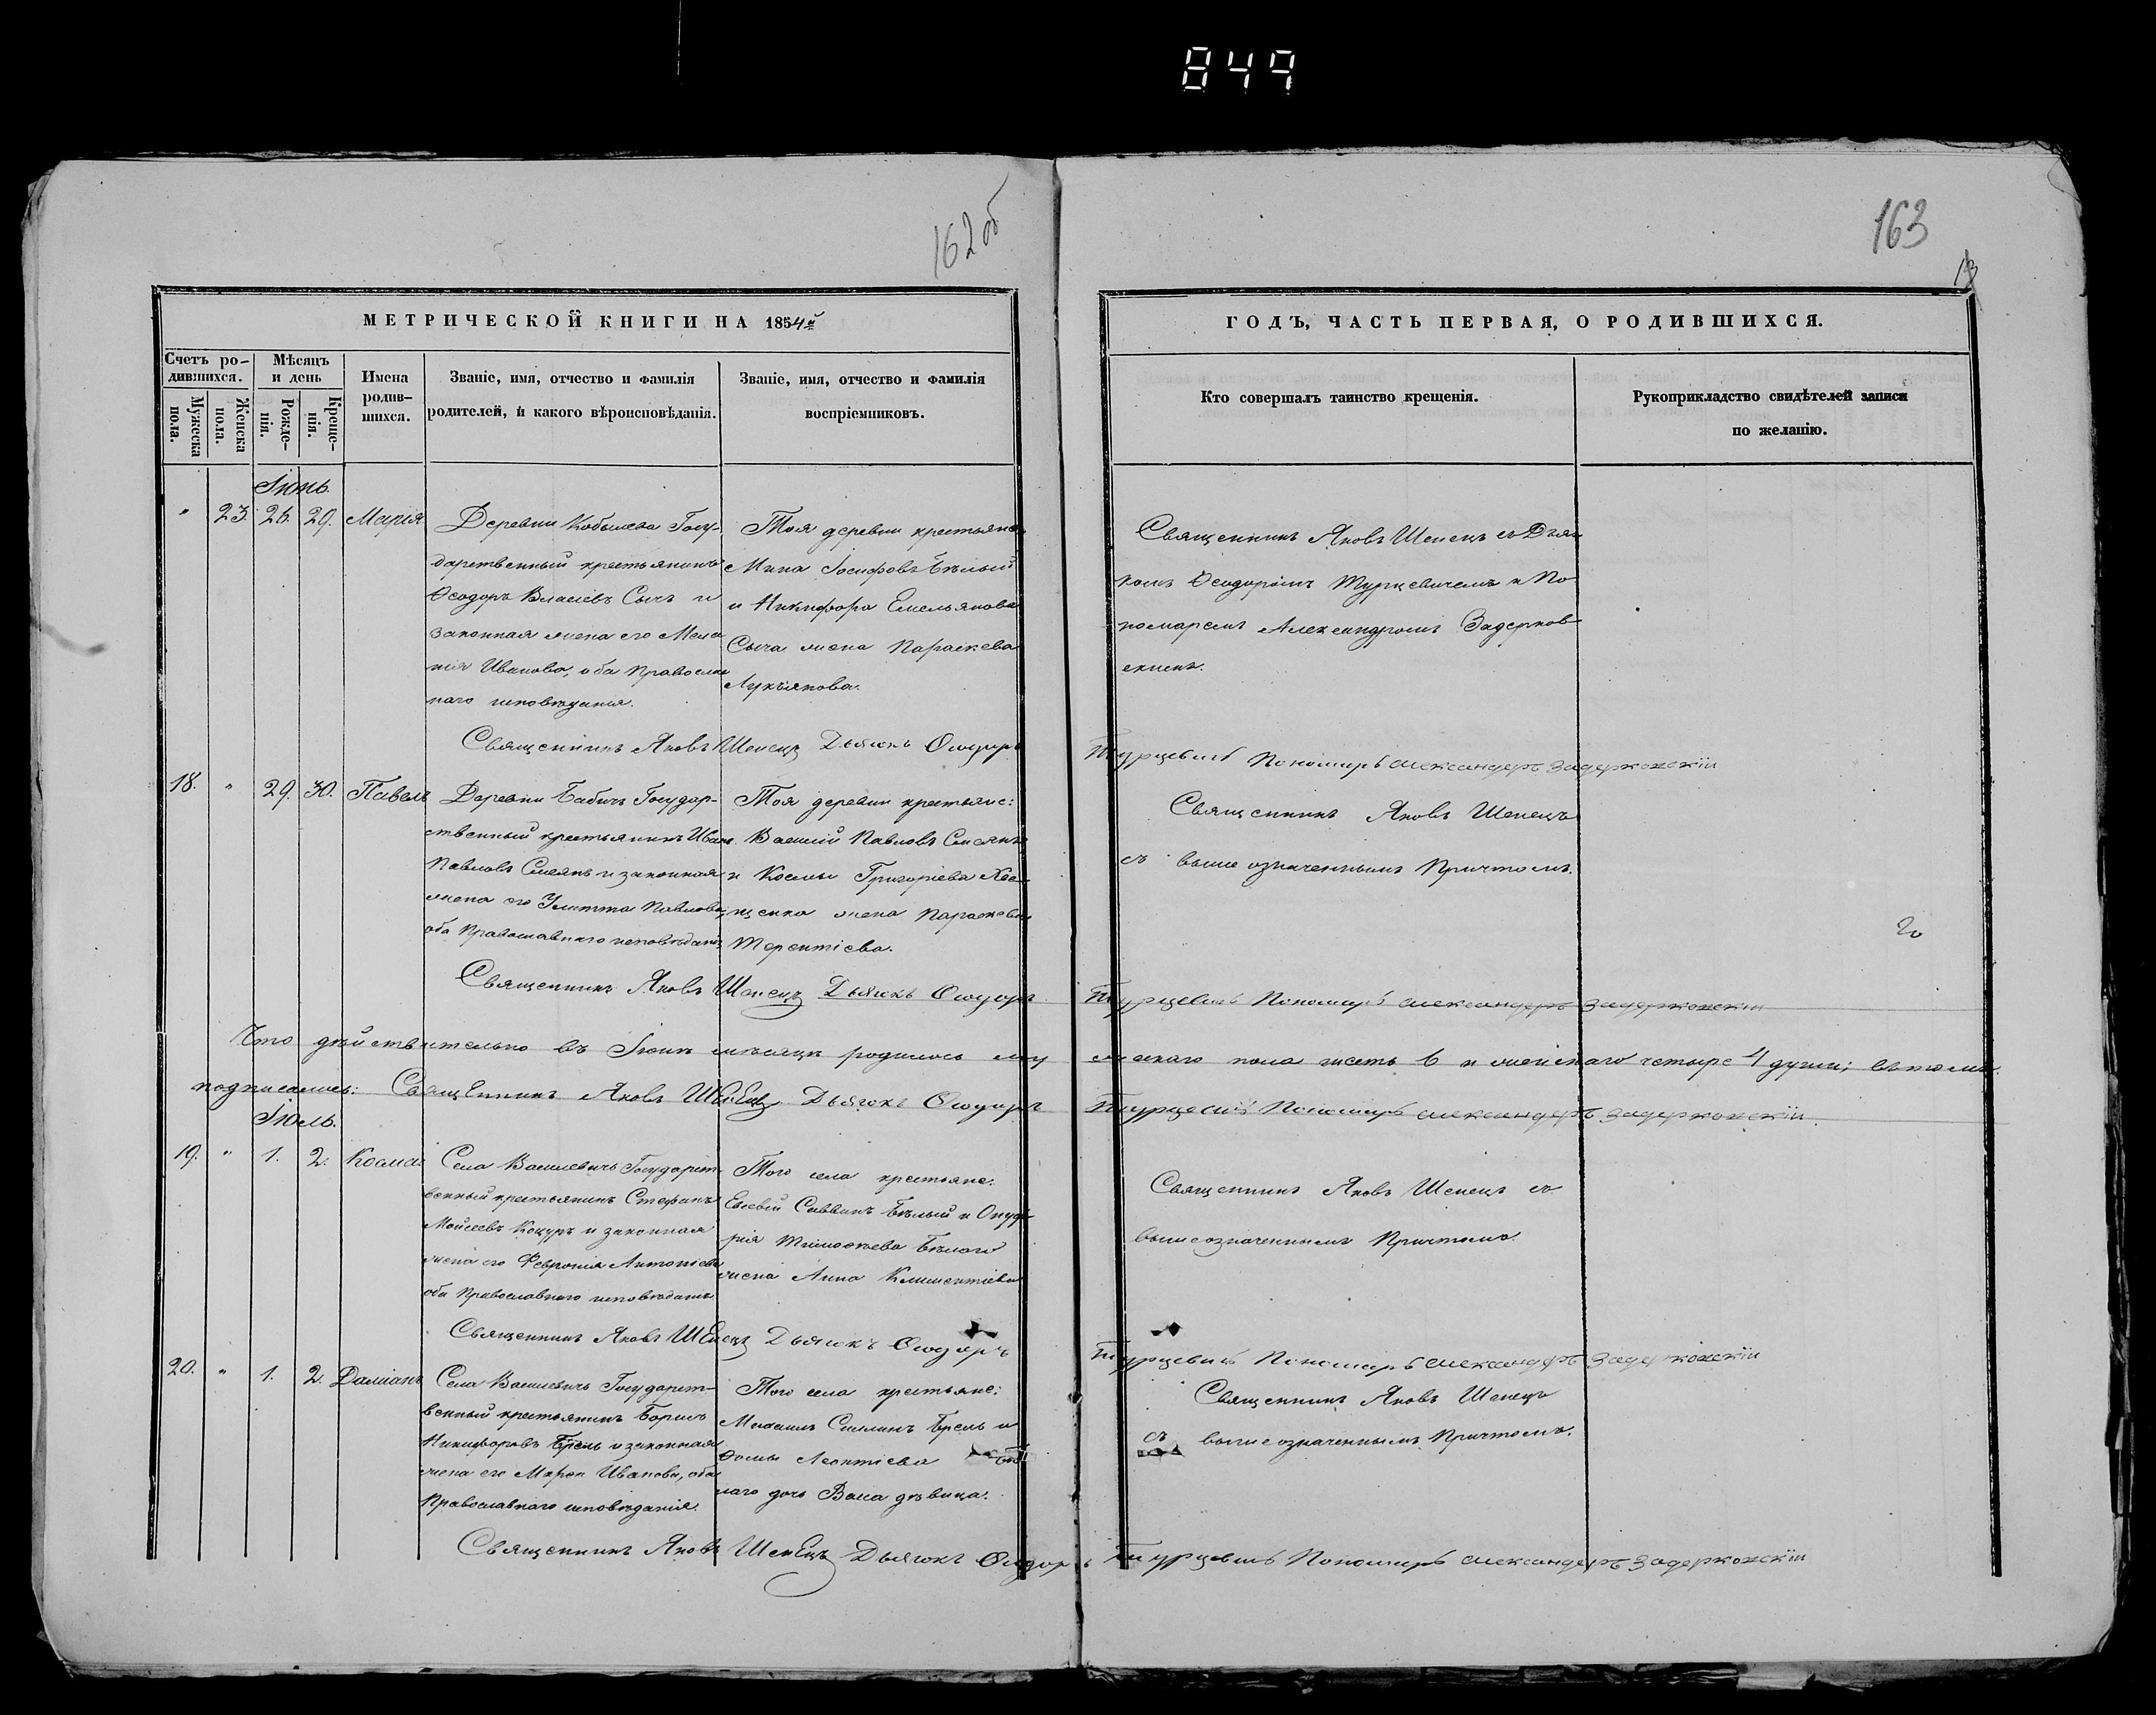 849
162 об
163
13
МЕТРИЧЕСКОЙ КНИГИ НА 1854й
ГОДЪ, ЧАСТЬ ПЕРВАЯ, О РОДИВШИХСЯ.
Счетъ ро-
дившихся.
Мужеска пола.
Женска пола.
Мѣсяцъ
и день
Рожде-
нія.
Креще-
нія.
Имена
родив-
шихся.
Званіе, имя, отчество и фамилія
родителей, и какого вѣроисповѣданія.
Званіе, имя, отчество и фамилія
воспріемниковъ.
Кто совершалъ таинство крещенія.
Рукоприкладство свидѣтелей записи
по желанію.
Іюнь.
" 23. 26. 29. Марія
Деревни Кобылева Госу-
дарственный крестьянинъ
Ѳеодоръ Власіевъ Сычъ и
законная жена его Мела
нія Иванова, оба Православ
наго исповѣданія.
Тоя деревни крестьяне
Мина Іосифовъ Бѣлый
и Никифора Емельянова
Сыча жена Параскева
Лукъянова.
Священникъ Яковъ Шепецъ съ Дьяч
комъ Ѳеодоромъ Турцевичемъ и По
номаремъ Александромъ Задерков
скимъ.
Священникъ Яковъ Шепецъ Дьячокъ Ѳеодоръ Турцевичъ Пономарь Александеръ Задерковскій
18. " 29. 30. Павелъ
Деревни Бабичъ Государ-
ственный крестьянинъ Иванъ
Павловъ Смеянъ и законная
жена его Улитта Павлова,
оба Православнаго исповѣданія
Тоя деревни крестьяне:
Василій Павловъ Смеянъ
и Космы Григоріева
жена Параскева
Терентіева.
Священникъ Яковъ Шепецъ
съ выше означеннымъ Причтомъ.
Священникъ Яковъ Шепецъ Дьячокъ Ѳеодоръ Турцевичъ Пономарь Александеръ Задерковскій
Что дѣйствительно въ Іюнѣ мѣсяцѣ родилось му жескаго пола шесть 6 и женскаго четыре 4 души; въ томъ
подписались: Священникъ Яковъ Шепецъ Дьячокъ Ѳеодоръ Турцевичъ Пономарь Александеръ Задерковскій.
Іюль.
19. " 1. 2. Косма
Села Василевичъ Государст-
венный крестьянинъ Стефанъ
Мойсеевъ Коцуръ и законная
жена его Февронія Антоніева
оба Православнаго исповѣданія
Того села крестьяне:
Евсевій Саввинъ Бѣлый и Онуф-
рія Тимоѳѣева Бѣлаго
жена Анна Климентіева
Священникъ Яковъ Шепецъ съ
вышеозначеннымъ Причтомъ.
Священникъ Яковъ Шепецъ Дьячокъ Ѳеодоръ Турцевичъ Пономарь Александеръ Задерковскій
20. " 1. 2. Даміанъ
Села Василевичъ Государст-
венный крестьянинъ Борисъ
Никифоровъ Брель и законная
жена его Марѳа Иванова, оба
Православнаго исповѣданія.
Того села крестьяне:
Брель и
Ѳомы Леонтіева
наго дочь Васса дѣвица.
Священникъ Яковъ Шепецъ
съ вышеозначеннымъ Причтомъ.
Священникъ Яковъ Шепецъ Дьячокъ Ѳеодоръ Турцевичъ Пономарь Александеръ Задерковскій